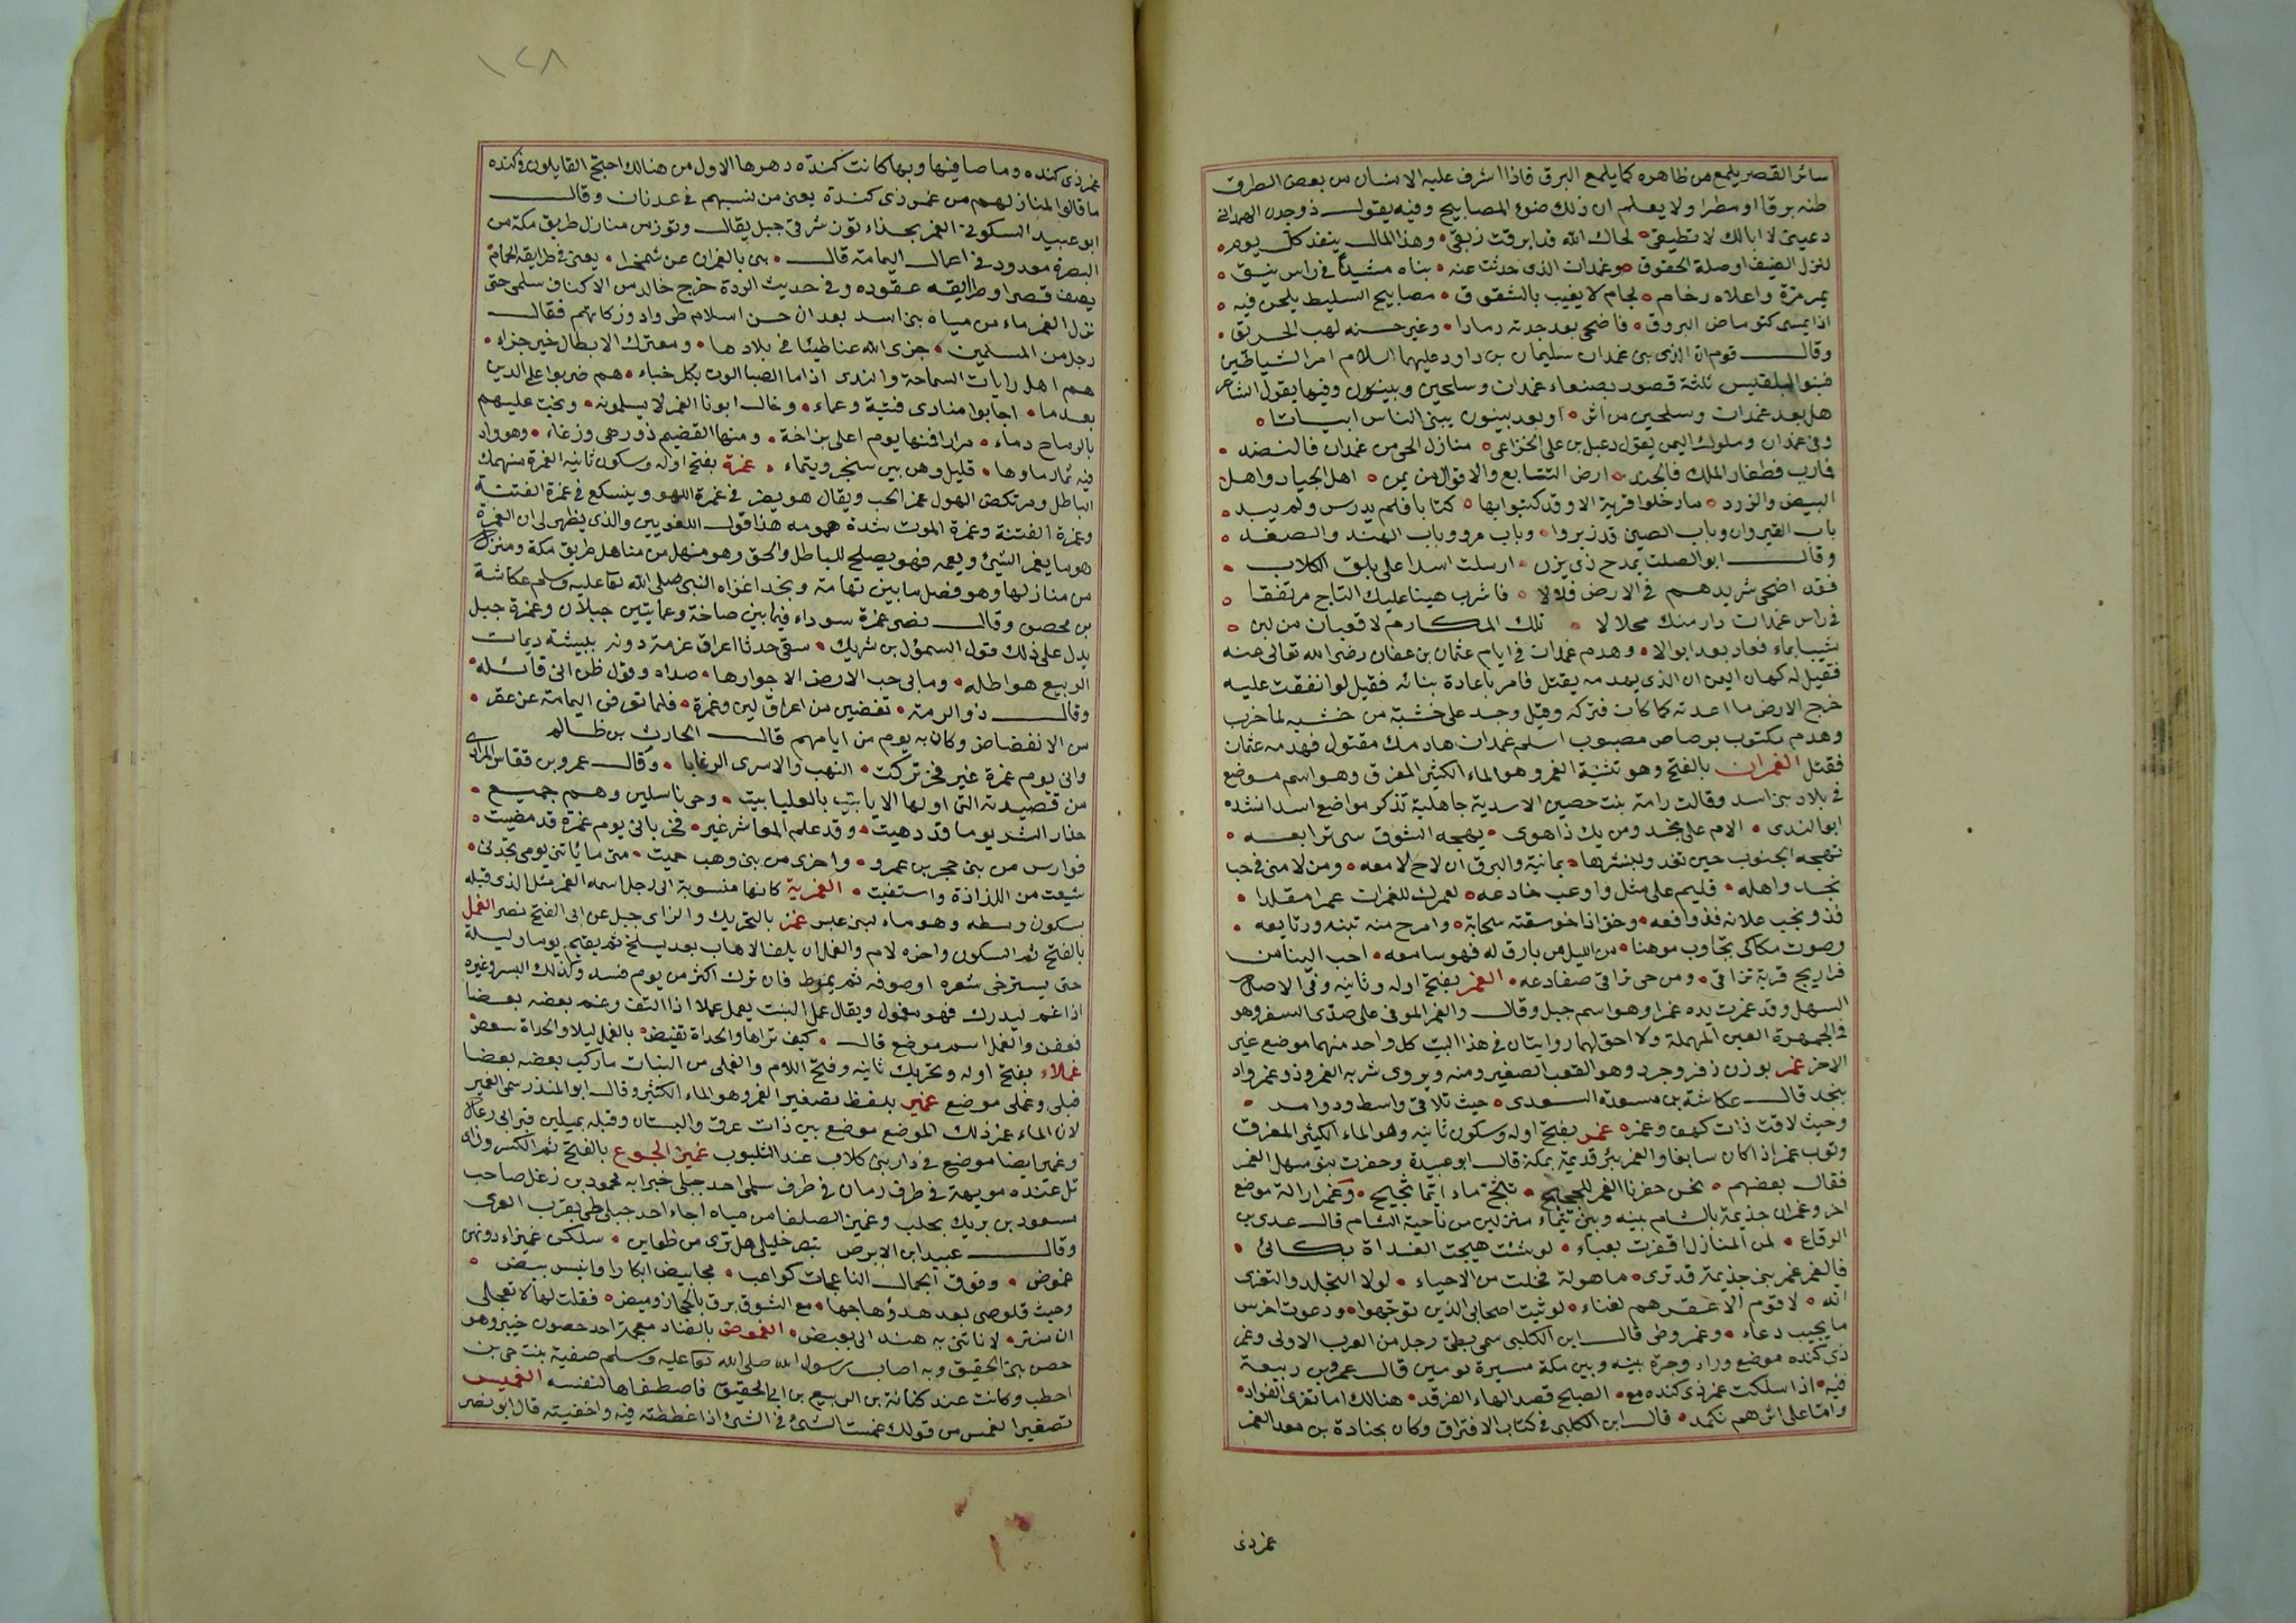 سائر القصر يلمع من ظاهره كما يلمع البرق فاذا اشرف عليه الانسان من بعض الطرق
ظنه برقا او مطرا ولا يعلم ان ذلك ضوء المصابيح وفيه يقول ذو جدن الهمدانى
دعينى لا ابالك لا تطيقى لحاك الله قد ابرقت ريقى وهذا المال ينفد كل يوم
لنزل الضيف او صلة الحقوق وغمدان الذى حدثت عنه بناه مشيدا فى راس نيق
بمرمرة واعلاه رخام لجام لا يغيب بالشقوق مصابيح السليط يلحن فيه
اذا يمسى كتوماض البروق فاضحى بعد جدته رمادا وغير حسنه لهب الحريق
وقال قوم ان الذى بنى غمدان سليمان بن داود عليهما السلام امر الشياطين
فبنوا لبلقيس ثلثة قصور بصنعاء غمدان وسلحين وبينون وفيها يقول الشاعر
هل بعد غمدان وسلحين من اثر او بعد بينون يبنى الناس ابياتا
وفى غمدان وملوك اليمن يقول دعبل بن على الخزاعى منازل الحى من غمدان فالنضد
فمارب فظفار الملك فالجند ارض التتابع والاقوال من يمن اهل الجياد واهل
البيض والزرد ما دخلوا قرية الا وقد كتبوا بها كتابا فلم يدرس ولم يبد
باب القيروان وباب الصين قد زبروا وباب مرو وباب الهند والصغد
وقال ابو الصلت يمدح ذى يزن ارسلت اسدا على بلق الكلاب
فقد اضحى شريدهم فى الارض فلالا فاشرب هنيئا عليك التاج مرتفقا
فى راس غمدان دار منك محلالا تلك المكارم لا قعبان من لبن
شيبا بماء فعاد بعد ابوالا وهدم غمدان فى ايام عثمان بن عفان رضى الله تعالى عنه
فقيل له كهان اليمن ان الذى يهدمه يقتل فامر باعادة بنائه فقيل لو انفقت عليه
خرج الارض ما اعدته كما كان فتركه وقيل وجد على خشبة من خشبه لما خرب
وهدم مكتوب برصاص مصبوب اسلم غمدان هادمك مقتول فهدمه عثمان
فقتل الغمران بالفتح وهو تثنية الغمر وهو الماء الكثير المغرق وهو اسم موضع
فى بلاد بنى اسد وقالت رامة بنت حصين الاسدية جاهلية تذكر مواضع اسد انشده
ابو الندى الام على نجد ومن يك ذا هوى يهجه الشوق شى ترابعه
تهجه الجنوب حين تغدو بنشرها يمانية والبرق ان لاح لامعه ومن لامنى فى حب
نجد واهله فليم على مثل واوعب خادعه لعمرك للغمران غمرا مقلدا
فذو نجب علانه فدوافعه وخو اذا خو سقته سحابة وامرح منه تبنه وربايعه
وصوت مكاكى تجاوب موهنا من الليل من بارق له فهو سامعه احب الينا من
فراريج قرية تزاقى ومن حى تزاقى ضفادعه الغمر بفتح اوله وثانيه وفى الاصل
السهل وقد غمرت يده غمرا وهو اسم جبل وقال والغمر الموفى على صدى السفر وهو
فى الجمهرة العين المهملة ولا احق لهما روايتان فى هذا البيت كل واحد منهما موضع غير
الاخر غمر بوزن زفر وجرد وهو القعب الصغير ومنه ويروى شربه الغمر وذو غمر واد
بنجد قال عكاشة بن مسعدة السعدى حيث تلاقى واسط وذو امر
وحيث لاقت ذات كهف وغمره غمر بفتح اوله وسكون ثانيه وهو الماء الكثير المغرق
وثوب غمر اذا كان سابغا والغمر بئر قديمة بمكة قال ابو عبيدة وحفرت بنو سهل الغمر
فقال بعضهم نحن حفرنا الغمر للحجيج تثج ماء ايما ثجيج وغمر اراكة موضع
اخر وغمر ابن جذيمة بالشام بينه وبين تيماء منزلين من ناحية الشام قال عدى بن
الرقاع لمن المنازل اقفرت بغباء لو شئت هيجت الغداة بكائى
فالغمر غمر بنى جذيمة قد ترى ماهولة فخلت من الاحياء لولا التجلد والتعزى
انه لا قوم الا عقرهم لفناء لرثيت اصحابى الذين توجهوا ودعوت اخرس
ما يجيب دعاء وغمر وطى قال ابن الكلبى سمى بطى رجل من العرب الاولى وغمر
ذى كنده موضع وراء وجرة بينه وبين مكة مسيرة يومين قال عمرو بن ربيعة
فيه اذا سلكت غمر ذى كنده مع الصبح قصد لها الفرقد هنالك اما تعزى الفواد
واما على اثرهم تكمد قال ابن الكلبى فى كتاب الافتراق وكان جنادة بن معد الغمر
غمر ذى
١٢٨
غمر ذى كنده وما صاقبها وبها كانت كنده دهرها الاول من هنالك احتج القايلون فى كنده
ما قالوا لمنازلهم من غمر ذى كندة يعنى من نسبهم فى عدنان وقال
ابو عبيد السكونى الغمر بحذاء توز شرقى جبل يقال وتوز من منازل طريق مكة من
البصرة معدود فى اعمال اليمامة قال بنى بالغمر ارعن مشمخرا يعنى فى طرايقه الحمام
يصف قصرا وطرايقه عقوده وفى حديث الردة خرج خالد من الاكناف سلمى حتى
نزل الغمر ماء من مياه بنى اسد بعد ان حسن اسلام طى وادوا زكاتهم فقال
رجل من المسلمين جزى الله عنا طيئا فى بلادها ومعترك الابطال خير جزاء
هم اهل رايات السماحة والندى اذا ما الصبا الوت بكل خباء هم ضربوا على الدين
بعدما اجابوا منادى فتنة وعماء وخال ابونا الغمر لا يسلمونه وثجت عليهم
بالرماح دماء مرارا فمنها يوم اعلى بزاخة ومنها القصيم ذو زهى ودعاء وهو واد
فيه ثماد ماوها قليل وهن بين سنجر وتيماء غمرة بفتح اوله وسكون ثانيه الغمرة منهمك
الباطل ومرتكض الهول غمر الحب ويقال هو يضرب فى غمرة اللهو ويتسكع فى غمرة الفتنة
وغمرة الفتنة وغمرة الموت شدة همومه هذا قول اللغويين والذى يظهر لى ان الغمرة
هو ما يغمر الشيئ ويعمه فهو يصلح للباطل والحق وهو منهل من مناهل طريق مكة ومنزل
من منازلها وهو فصل ما بين تهامة ونجد اغزاه النبى صلى الله تعا عليه وسلم عكاشة
بن محصن وقال نصر غمرة سوداء فيما بين صاخة وعمايتين جبلان وغمرة جبل
يدل على ذلك قول السموؤل بن شريك سقى حدثا اعراق غرمة دونه ببيشة ديمات
الربيع هواطله وما بى حب الارض الا جوارها صداه وقول ظن انى قائله
وقال ذو الرمة تقضين من اعراف لبن وغمرة فلما تعرفن اليمامة عن عفر
من الانقضاض وكان به يوم من ايامهم قال الحارث بن ظالم
وانى يوم غمرة غير فخر تركت النهب والاسرى الرغابا وقال عمرو بن قعاس المرادى
من قصيدته التى اولها الا يا بيت بالعليا بيت وحى ناسلين وهم جميع
حذار الشر يوما قد دهيت وقد علم المعاشر غير فخر بانى يوم غمرة قد مضيت
فوارس من بنى حجر بن عمرو واخرى من بنى وهب حميت متى ما ياتنى يومى تجدنى
شبعت من اللذاذة واستقيت الغمرية كانها منسوبة الى رجل اسمه الغمر مثل الذى قبله
بسكون وسطه وهو ماء لبنى عبس غمز بالتحريك والزاى جبل عن ابى الفتح نصر الغمل
بالفتح ثم السكون واخره لام والغمل ان يلف الاهاب بعد يسلخ ثم يقيم يوما وليلة
حتى يسترخى شعره او صوفه ثم يمرط فان ترك اكثر من يوم فسد وكذلك البسر وغيره
اذا غم ليدرك فهو مغمول ويقال غمل النبت يغمل غملا اذا التف وغم بعضه بعضا
فعفن والغمل اسم موضع قال كيف تراها والحداة تقيض بالغمل ليلا والحداة سعض
غملاء بفتح اوله وتحريك ثانيه وفتح اللام والغملى من النبات ما ركب بعضه بعضا
فبلى وغملى موضع غمير بلفظ تصغير الغمر وهو الماء الكثير وقال ابو المنذر سمى الغمير
لان الماء غمر ذلك الموضع موضع بين ذات عرق والبستان وقبله بميلين قبر ابى رغال
وغمير ايضا موضع فى دار بنى كلاب عند الثلبوت غميز الجوع بالفتح ثم الكسر وزاى
تل عنده مويهة فى طرف رمان فى طرف سلمى احد جبلى خبرا به محمود بن زغل صاحب
مسعود بن بريك بحلب وغميز الصلعا من مياه اجاء احد جبلى طى بقرب الغرى
وقال عبيد ابن الابرص تبصر خليلى هل ترى من ظعاين سلكن غميزا دونهن
غموض وفوق الجمال الناعجات كواعب مخابيض ابكارا وانيس بيض
وحيث قلوصى بعد هدؤ هاجها مع الشوق برق بالحجاز وميض فقلت لها لا تعجلى
ان منزلا ناتنى به هند الى بعيض الغموض بالضاد معجمة احد حصون خيبر وهو
حصن بنى الحقيق وبه اصاب رسول الله صلى الله تعا عليه وسلم صفية بنت حى بن
احطب وكانت عند كنانة بن الربيع بن ابى الحقيق فاصطفاها لنفسه الغميس
تصغير الغمس من قولك غمست الشئ فى الشئ اذا غططته فيه واخفيته قال ابو نصر